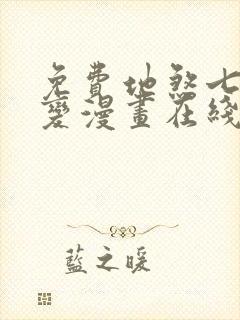 免費地煞七
變漫畫在綫
藍之暖